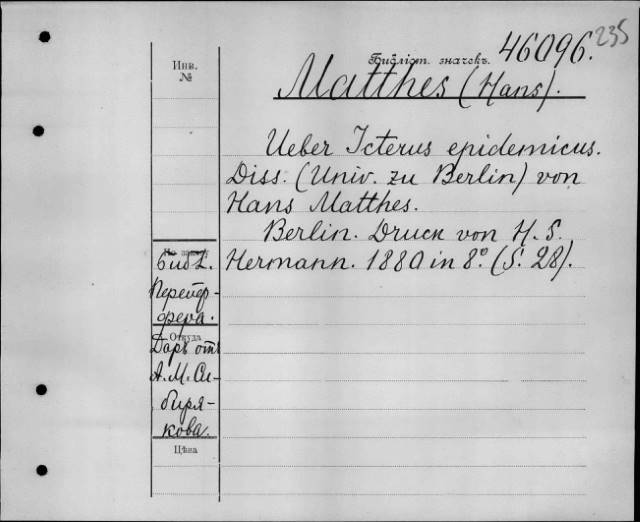 235
Библіот. значекъ. 46096.
Инв.
№
Matthes (Hans).
Ueber Icterus epidemicus.
Diss. (Univ. zu Berlin) von
Hans Matthes.
Berlin. Druck von H. S.
Hermann. 1880 in 8° (S. 28).
Библ.
Перепер-
фера.
Откуда
Даръ отъ
А. М. Си-
биря-
кова.
Цѣна